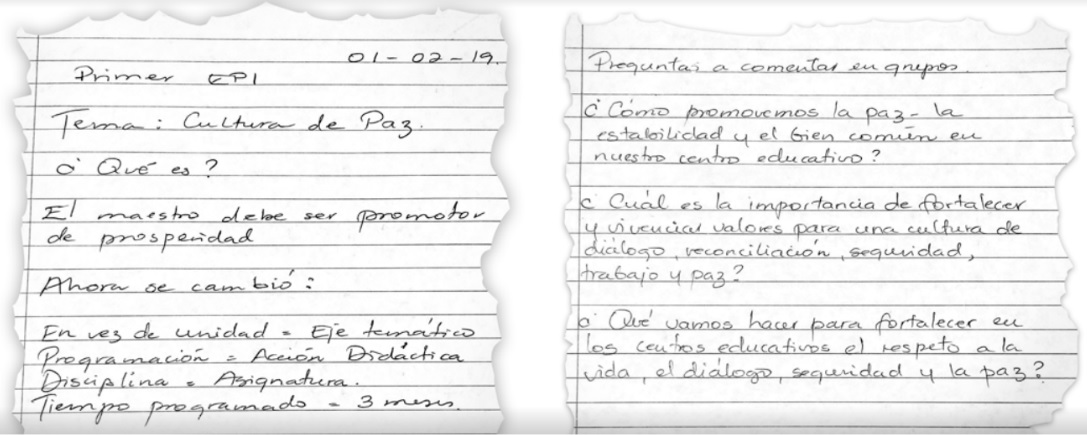 01-02-19.
Primer EPI
Tema: Cultura de Paz.
¿Qué es?
El maestro debe ser promotor
de prosperidad
Ahora se cambió:
En vez de unidad = Eje temático
Programación = Acción Didáctica
Disciplina = Asignatura.
Tiempo programado = 3 meses.
Preguntas a comentar en grupos.
¿Cómo promovemos la paz - la
estabilidad y el bien común en
nuestro centro educativo?
¿Cuál es la importancia de fortalecer
y vivenciar valores para una cultura de
diálogo, reconciliación, seguridad,
trabajo y paz?
¿Qué vamos hacer para fortalecer en
los centros educativos el respeto a la
vida, el diálogo, seguridad y la paz?